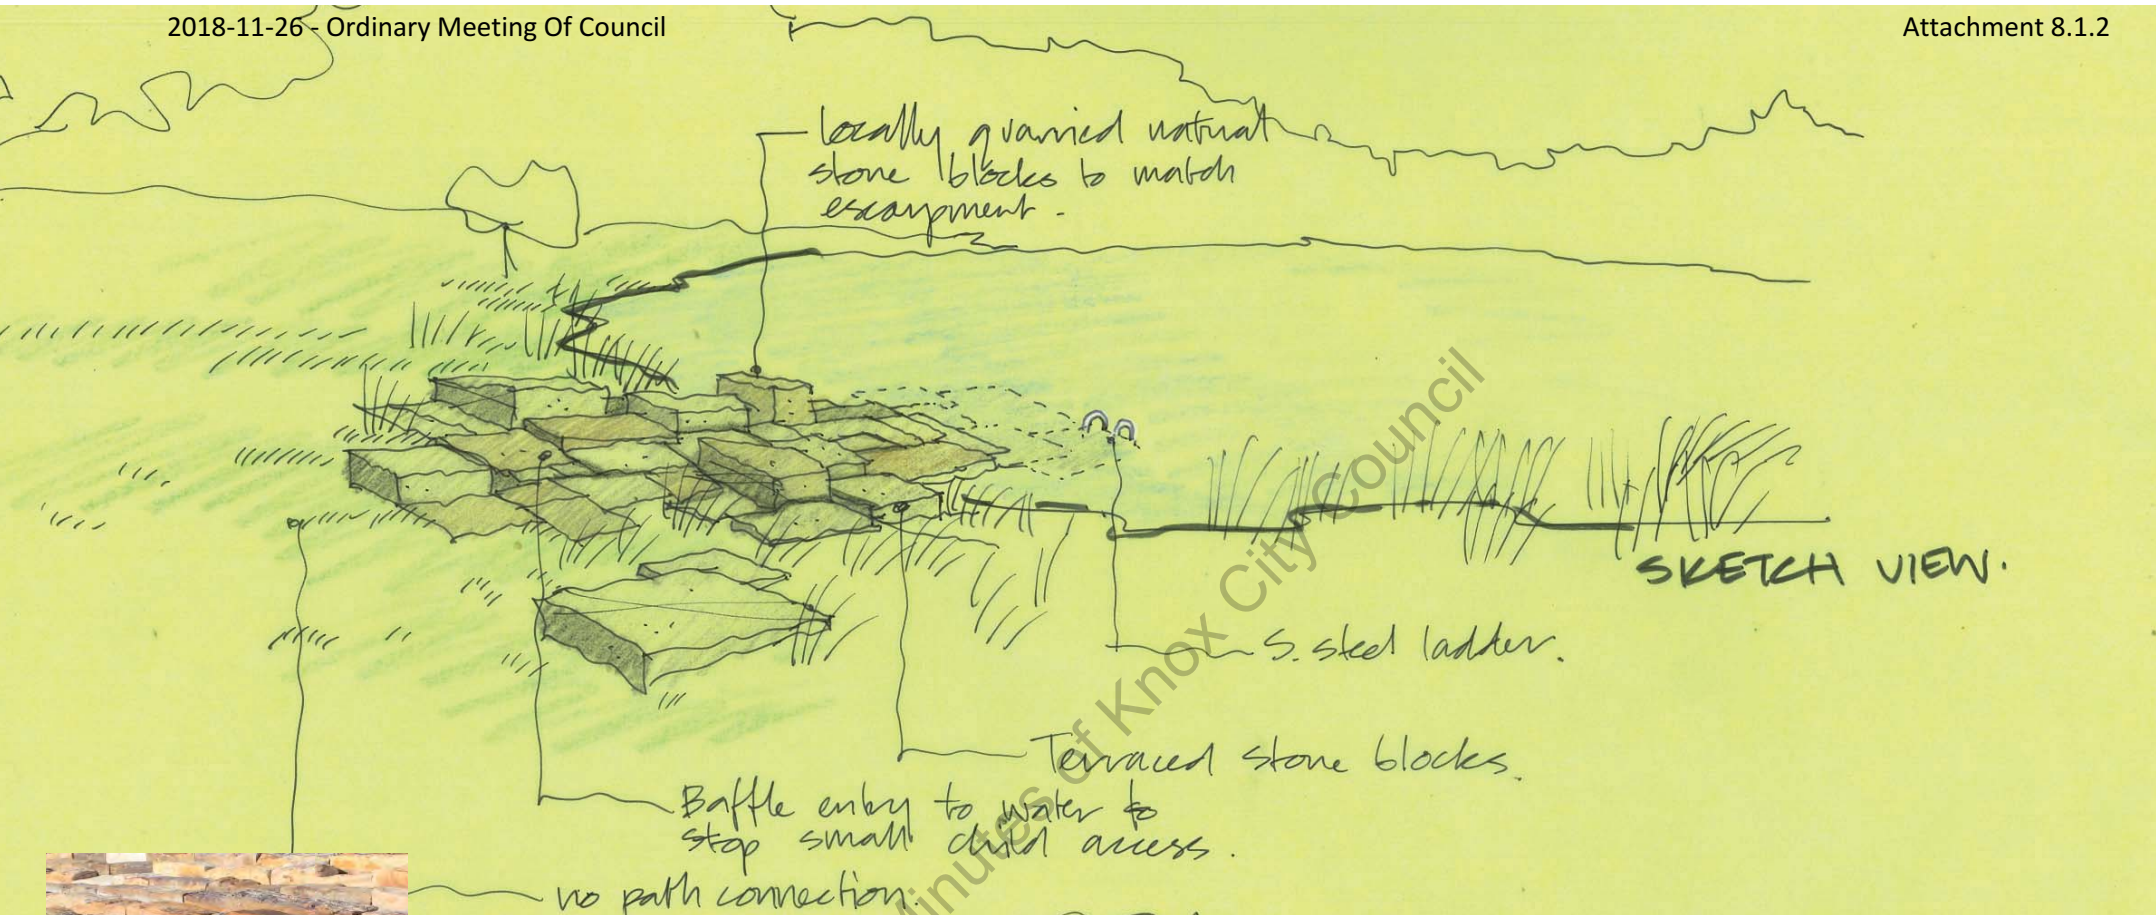 2018-11-26 - Ordinary Meeting Of Council
Attachment 8.1.2
locally quarried natural
stone blocks to match
escarpment.
SKETCH VIEW.
S. steel ladder.
Terraced stone blocks.
Baffle entry to water to
stop small child access.
no path connection.
Minutes of Knox City Council